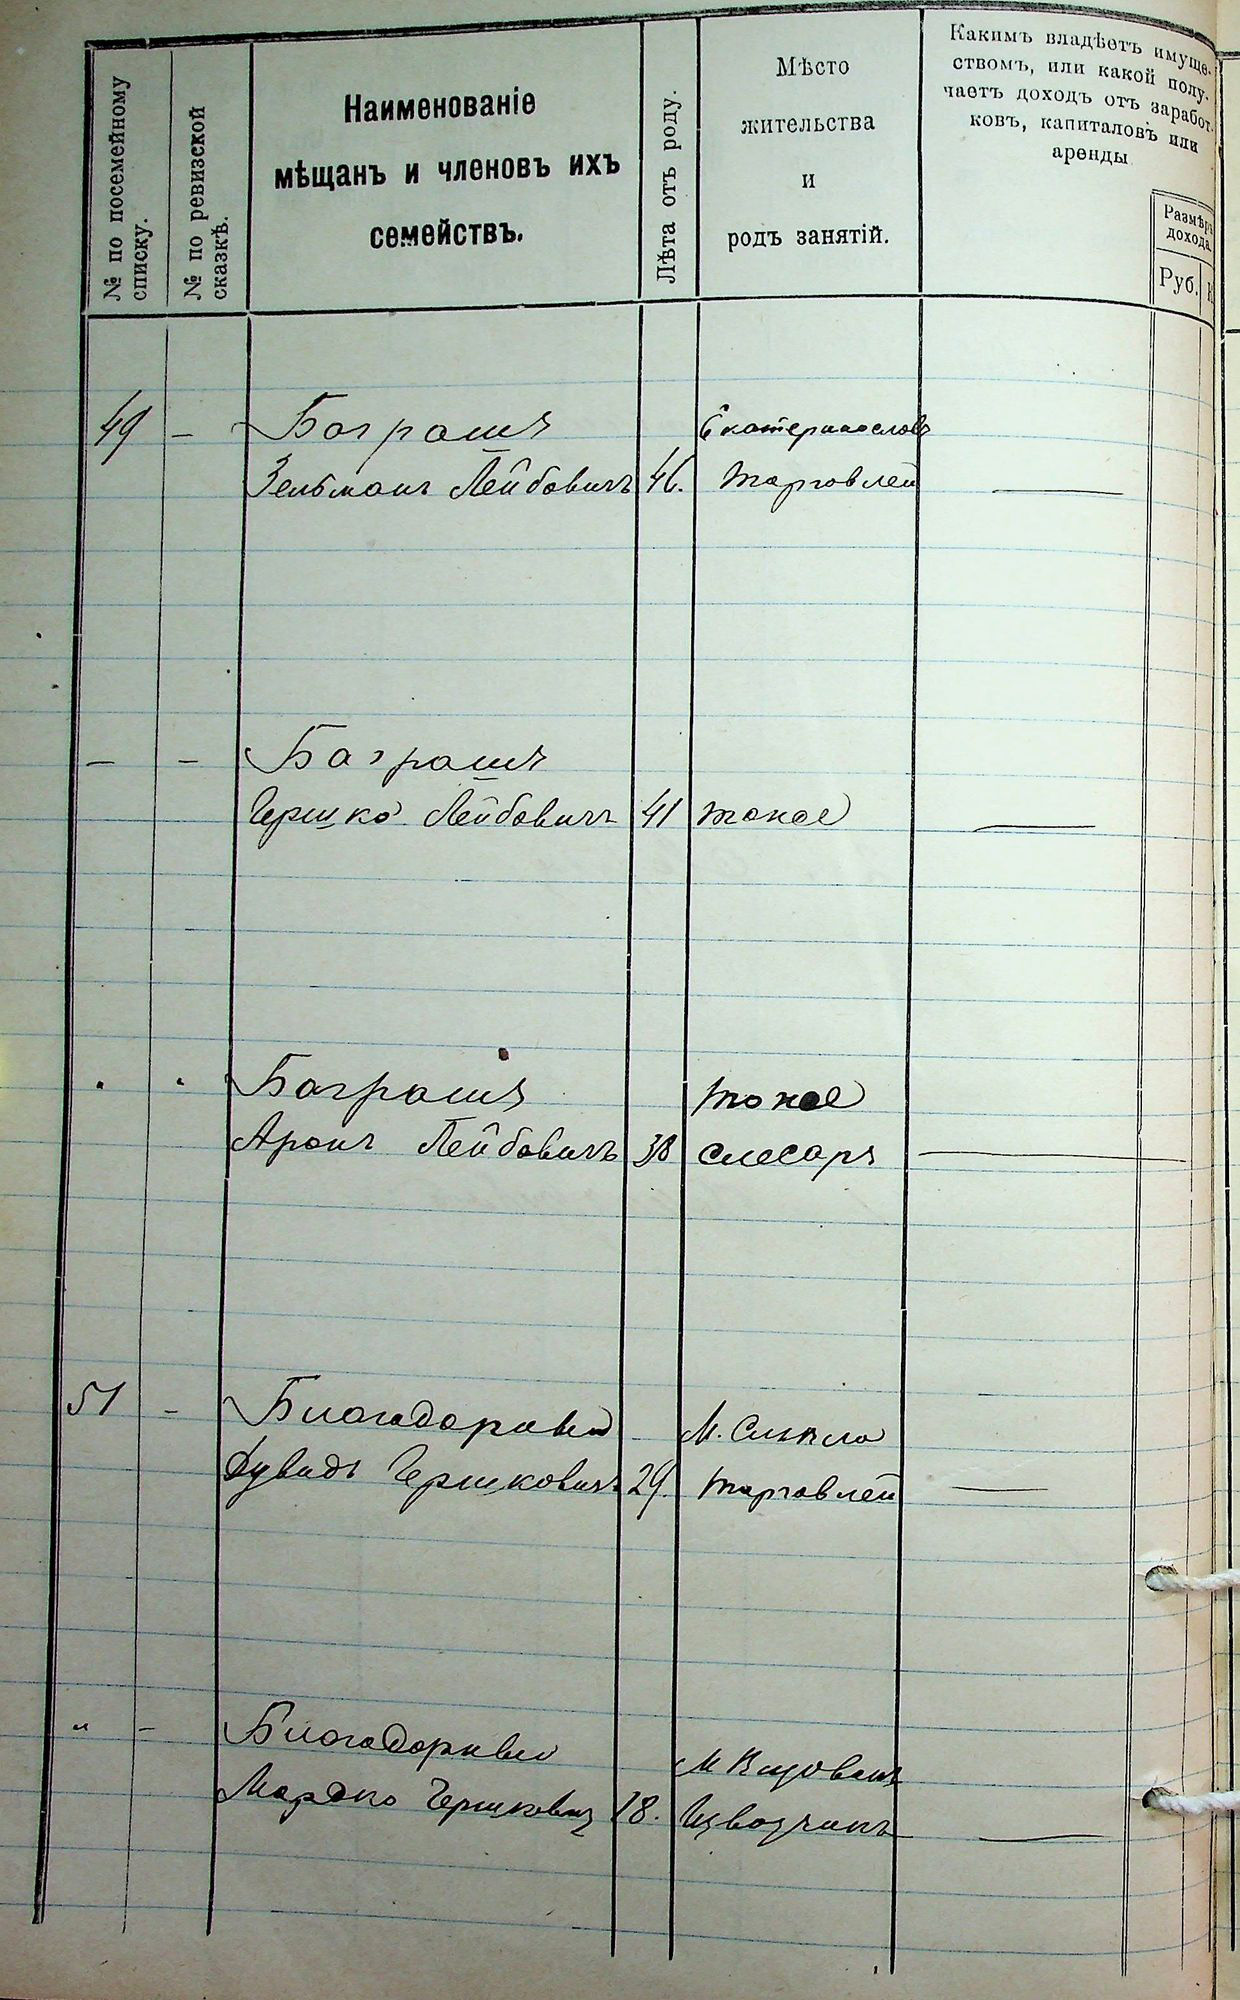 № по посемейному
списку.
№ по ревизской
сказкѣ.
Наименованіе
мѣщанъ и членовъ ихъ
семействъ.
Лѣта отъ роду.
Мѣсто
жительства
и
родъ занятій.
Какимъ владѣетъ имуще-
ствомъ, или какой полу-
чаетъ доходъ отъ заработ-
ковъ, капиталовъ или
аренды
Размѣръ
дохода.
Руб.
49 — Баграшъ Екатеринослав
Зельманъ Лейбовичъ 46. Торговлей —
— — Баграшъ
Гершко Лейбовичъ 41 тоже —
Баграшъ тоже
Аронъ Лейбовичъ 38 слесарь —
51 - Благодарный М. Смѣла
Дувидъ Гершковичъ 29. торговлей —
" - Благодарный М
Мордко Гершковичъ 28. Извозчикъ —